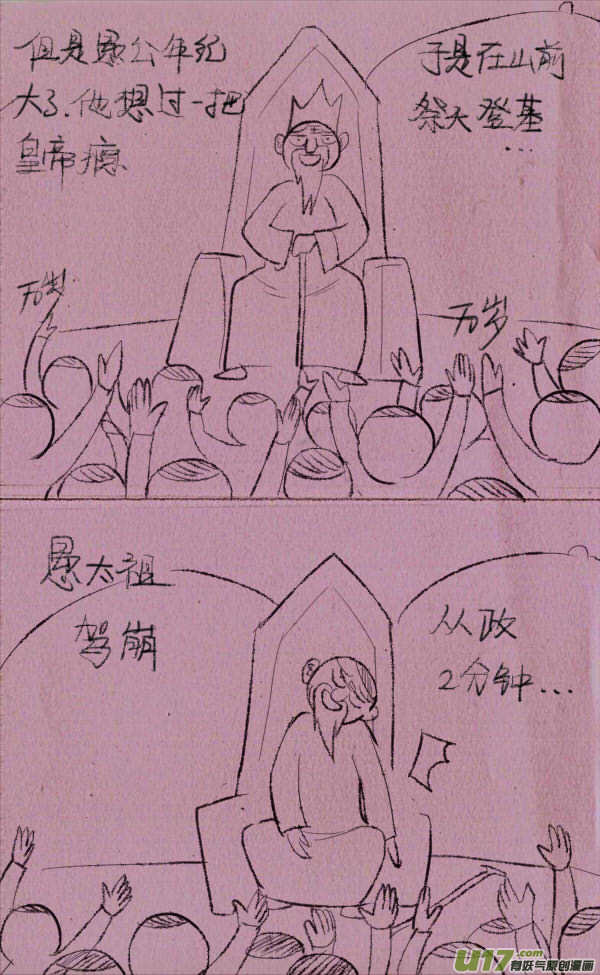 但是愚公年纪
大了.他想过一把
皇帝瘾
于是在山前
祭天登基
...
万岁
万岁
愚太祖
驾崩
从政
2分钟...
U17.com
有妖气原创漫画